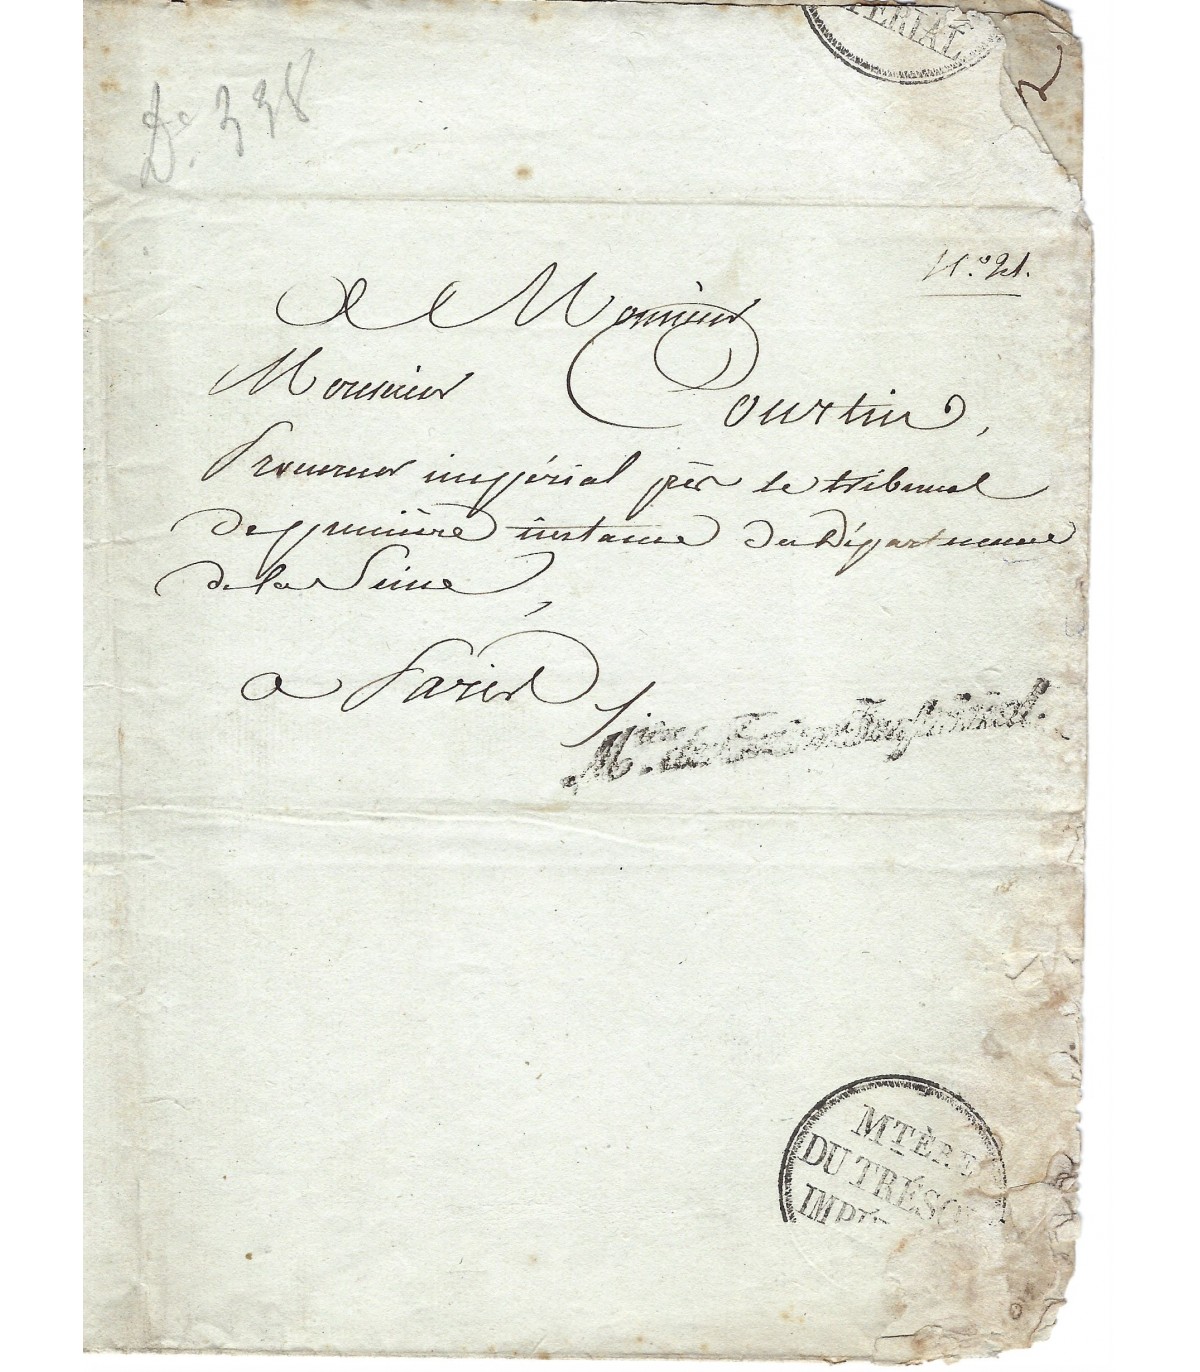 PÉRIAL
338
N.° 21.
A Monsieur
Monsieur Courtin,
Procureur impérial près le tribunal
de première instance du Département
de la Seine,
a Paris
M.ière du Trésor Impérial.
MTÈRE
DU TRÉSO
IMPÉ